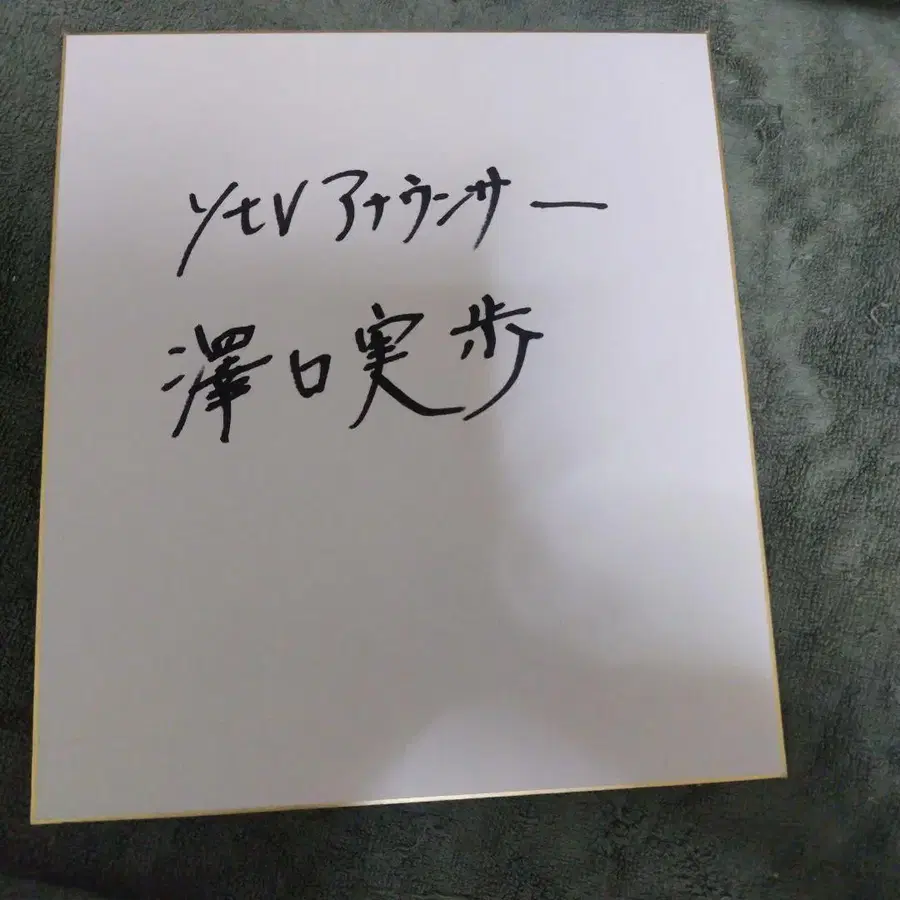 ytvアナウンサー
澤口実歩